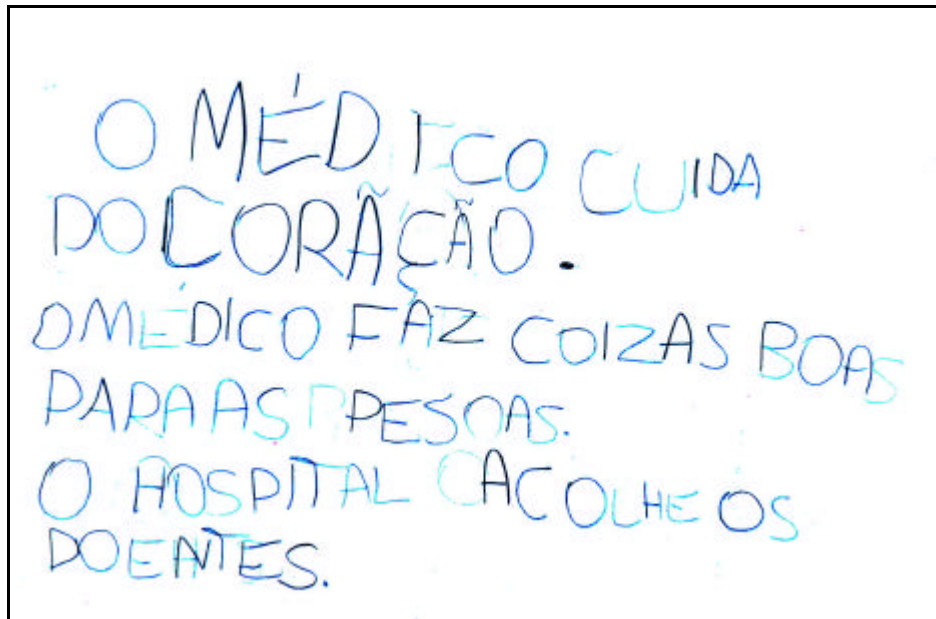 O MÉDICO CUIDA
DO CORÃÇÃO.
O MÉDICO FAZ COIZAS BOAS
PARA AS PPESOAS.
O HOSPITAL CACOLHE OS
DOENTES.